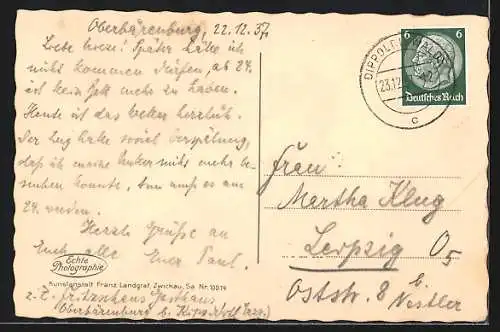 Oberbärenburg, 22.12.37.
Liebe Luise! Später hätte ich
nicht kommen dürfen, ab 24.
ist kein Bett mehr zu haben.
Heute ist das Wetter herrlich.
Der Zug hatte soviel Verspätung,
daß ich meine Mutter nicht mehr be-
suchen konnte, nun muß es am
24. werden.
Herzl. Grüße an
Euch alle Euer Paul.
Echte
Photographie
Kunstanstalt Franz Landgraf, Zwickau, Sa. Nr.
z. Z. Fritzschens Gasthaus
Oberbärenburg b. Kipsdorf
DIPPOLDISWALDE
23.12.
c
6 6
Deutsches Reich
Frau
Martha Klug
Leipzig O5
Oststr. 8 b.
Nestler